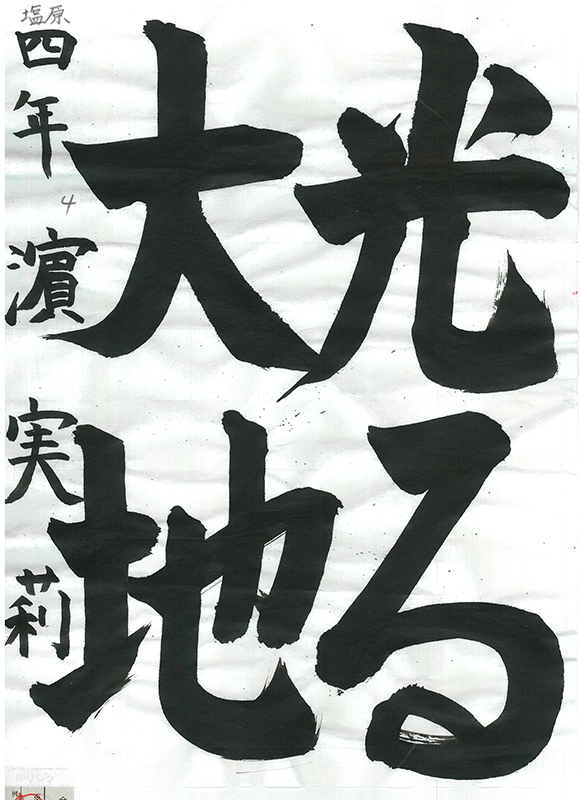 光る
大地
塩原
四年 濱 実莉
4